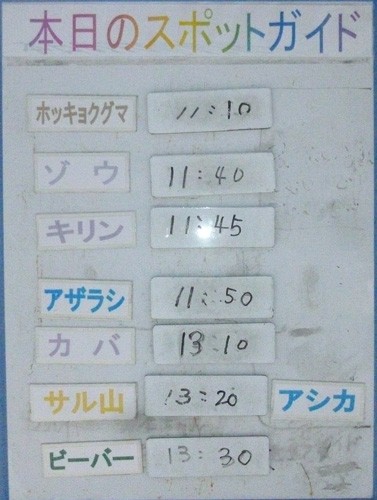 本日のスポットガイド
ホッキョクグマ 11:10
ゾウ 11:40
キリン 11:45
アザラシ 11:50
カバ 13:10
サル山 13:20 アシカ
ビーバー 13:30